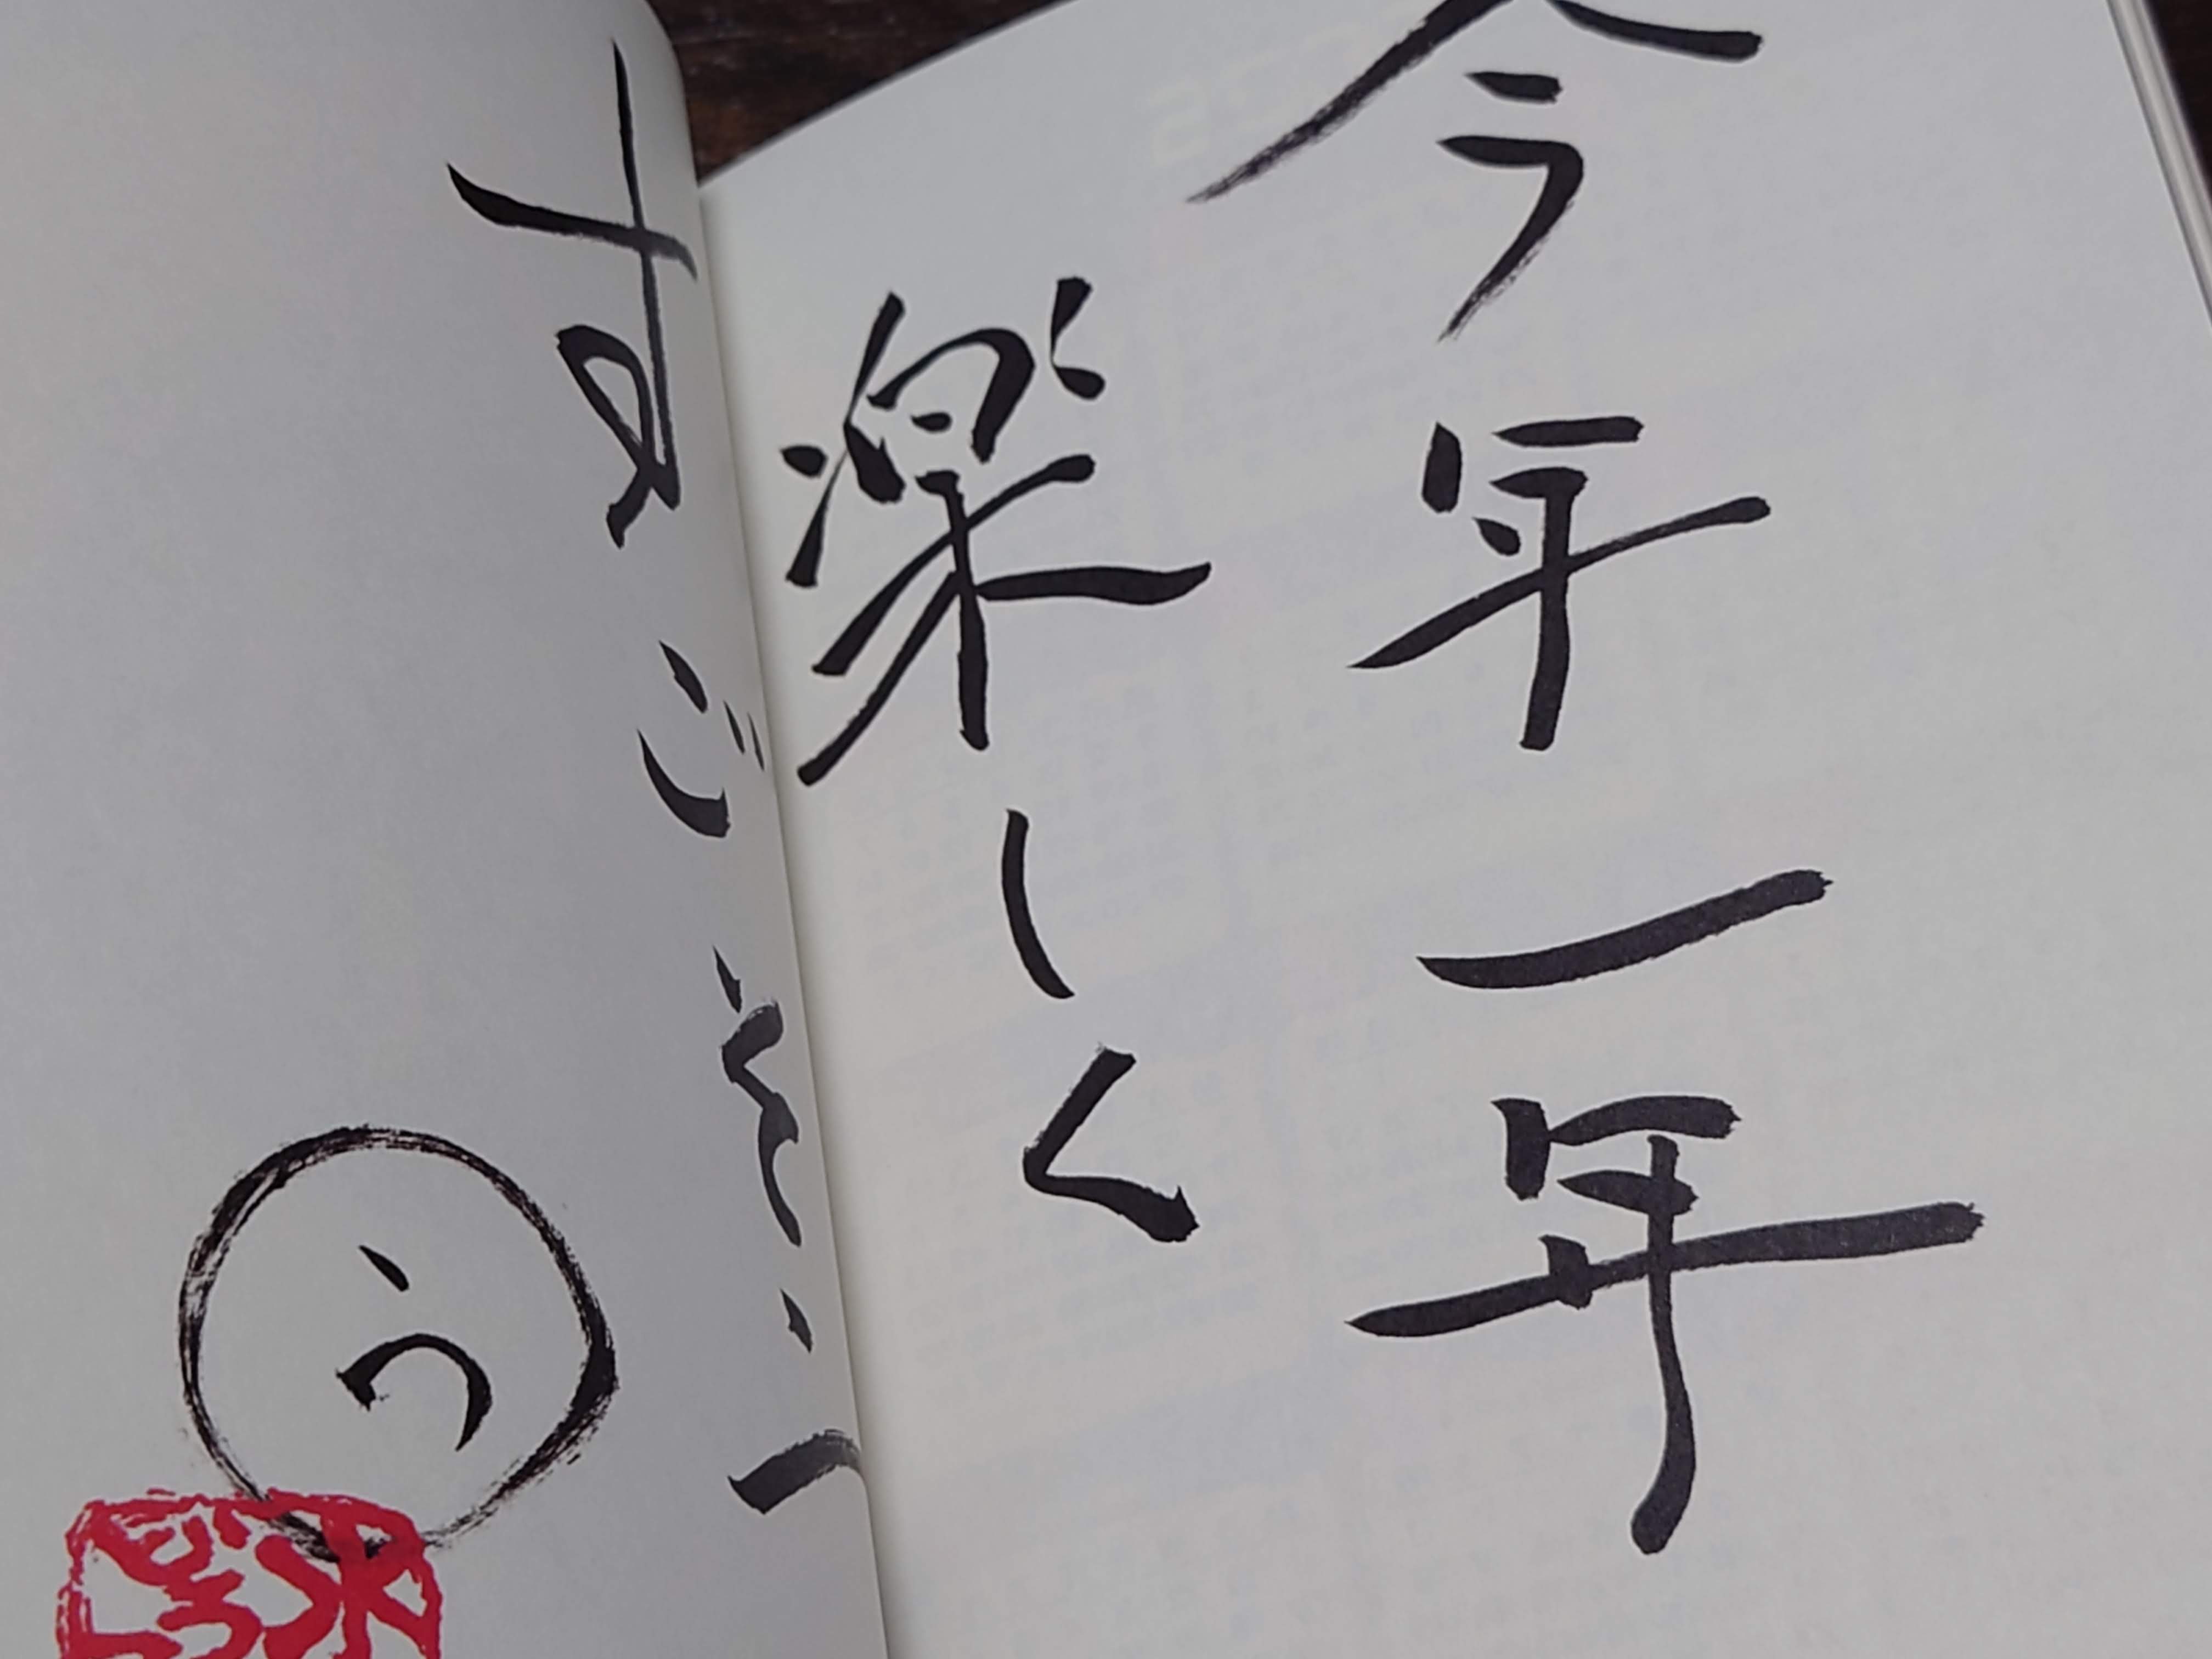 今年一年
楽しく
すごそう
う